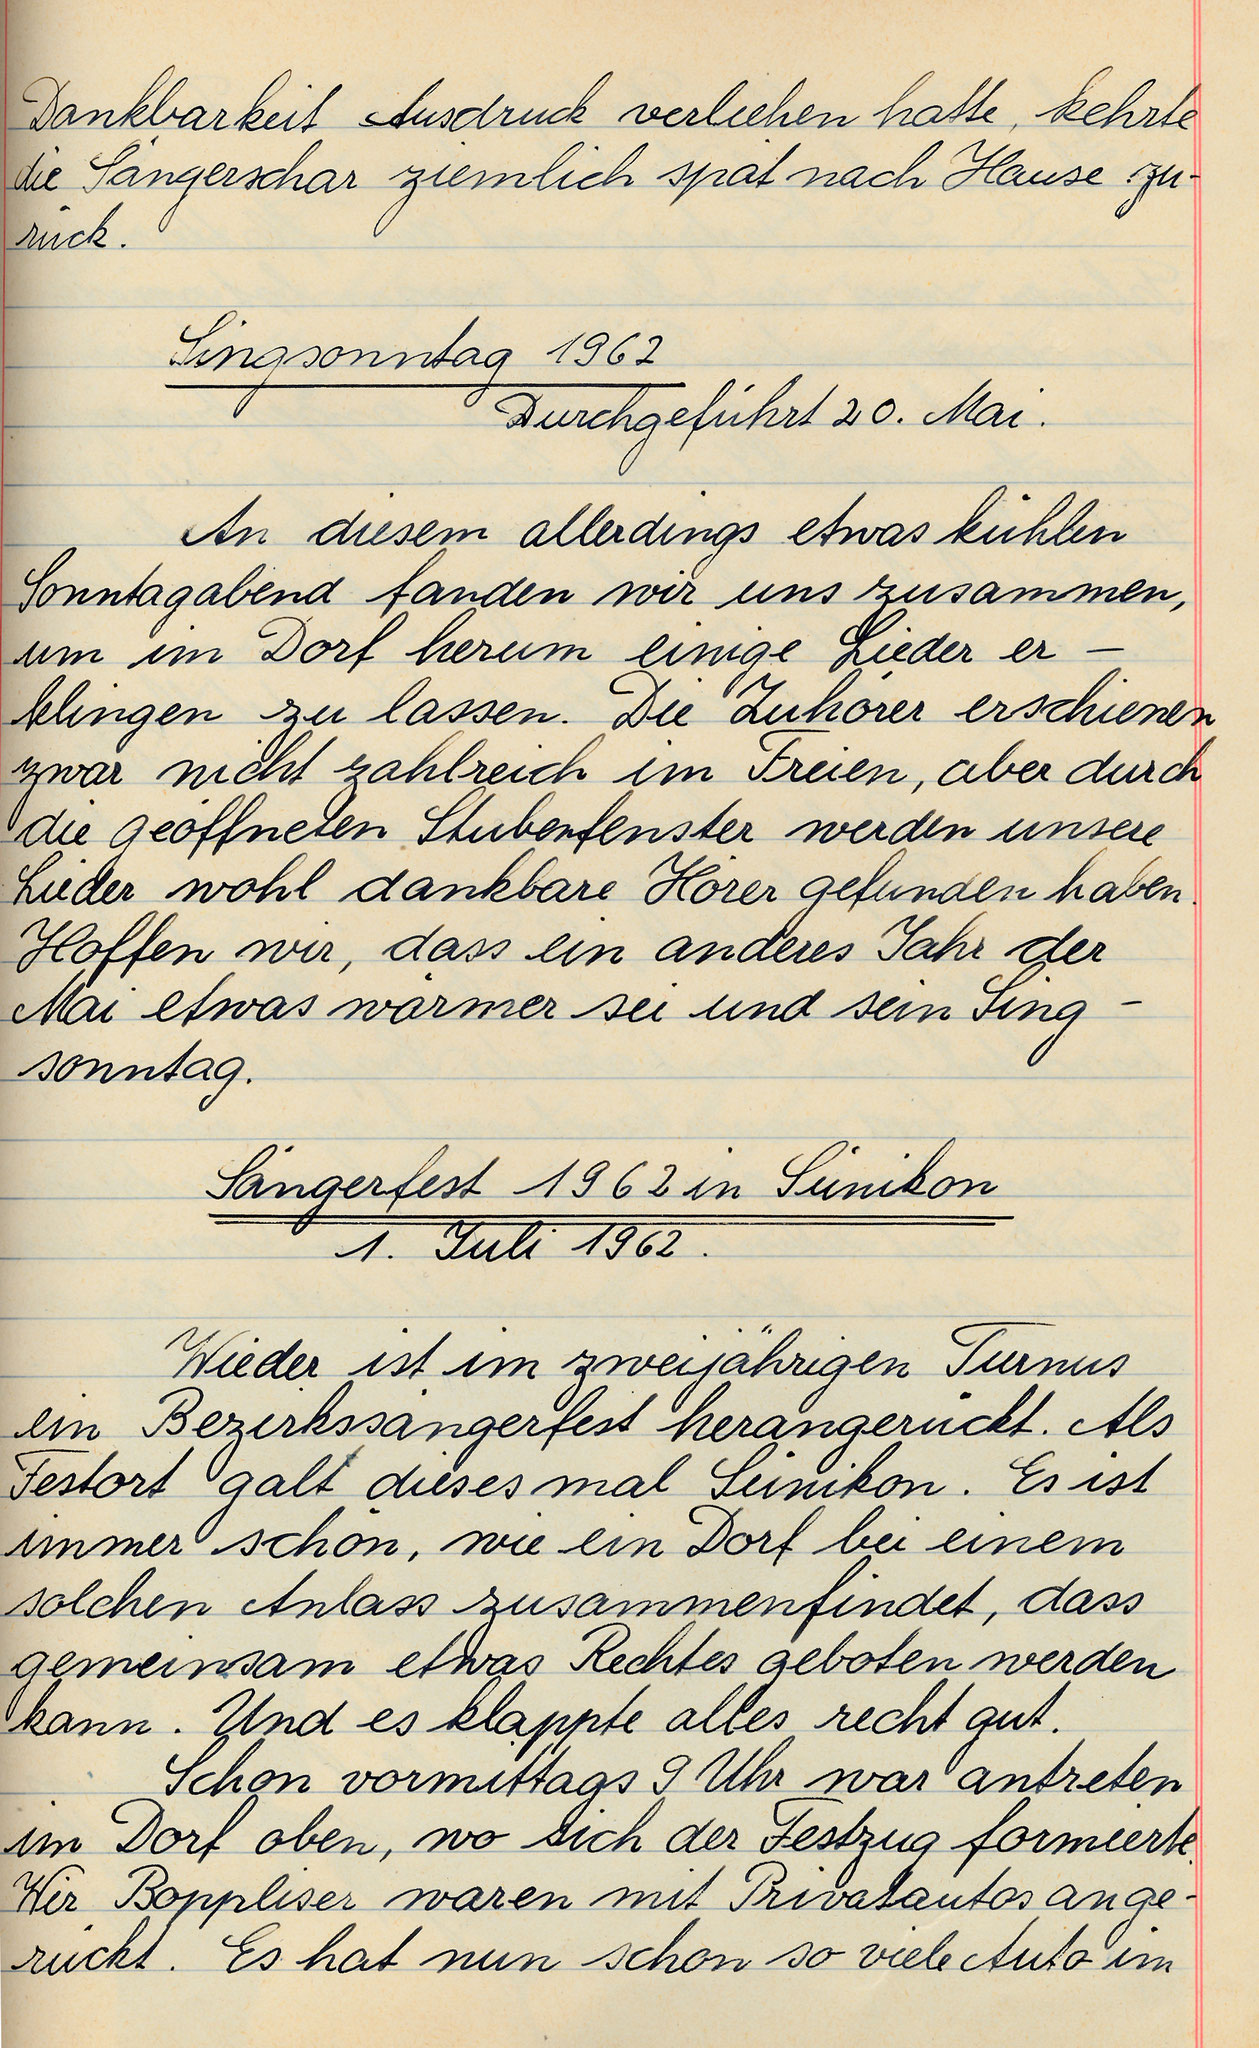 Dankbarkeit Ausdruck verliehen hatte, kehrte
die Sängerschar ziemlich spät nach Hause zu-
rück.
Singsonntag 1962
Durchgeführt 20. Mai.
An diesem allerdings etwas kühlen
Sonntagabend fanden wir uns zusammen,
um im Dorf herum einige Lieder er-
klingen zu lassen. Die Zuhörer erschienen
zwar nicht zahlreich im Freien, aber durch
die geöffneten Stubenfenster werden unsere
Lieder wohl dankbare Hörer gefunden haben.
Hoffen wir, dass ein anderes Jahr der
Mai etwas wärmer sei und sein Sing-
sonntag.
Sängerfest 1962 in Sünikon
1. Juli 1962.
Wieder ist im zweijährigen Turnus
ein Bezirkssängerfest herangerückt. Als
Festort galt dieses mal Sünikon. Es ist
immer schön, wie ein Dorf bei einem
solchen Anlass zusammenfindet, dass
gemeinsam etwas Rechtes geboten werden
kann. Und es klappte alles recht gut.
Schon vormittags 9 Uhr war antreten
im Dorf oben, wo sich der Festzug formierte.
Wir Boppliser waren mit Privatautos ange-
rückt. Es hat nun schon so viele Auto im